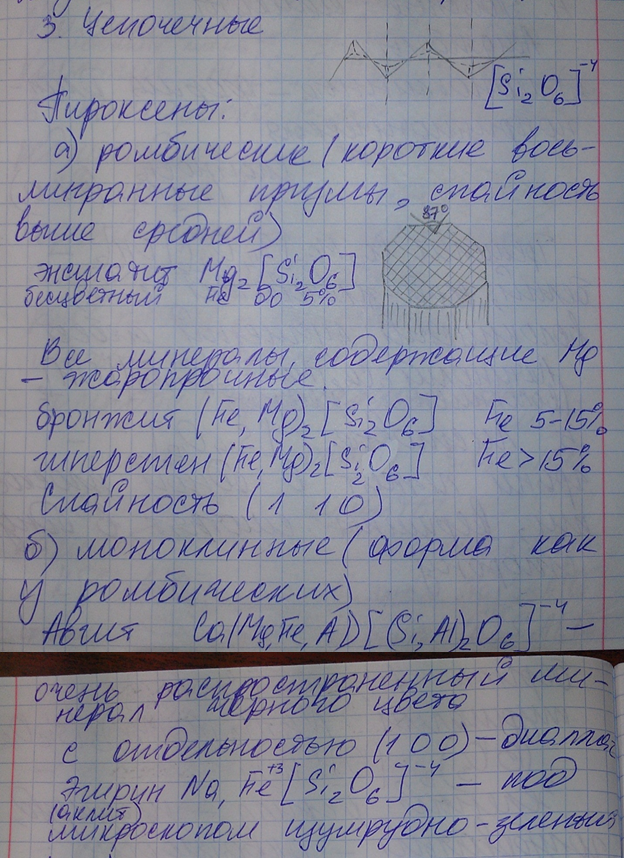 3. Цепочечные
[Si₂O₆]⁻⁴
Пироксены:
а) ромбические (короткие вось-
мигранные призмы, спайность
выше средней)
87°
энстатит Mg₂[Si₂O₆]
бесцветный Fe до 5%
Все минералы, содержащие Mg
– жаропрочные.
бронзит (Fe, Mg)₂[Si₂O₆] Fe 5-15%
гиперстен (Fe,Mg)₂[Si₂O₆] Fe>15%
Спайность (1 1 0)
б) моноклинные (форма как
у ромбических)
Авгит Ca(Mg,Fe,Al)[(Si,Al)₂O₆]⁻⁴ –
очень распространенный ми-
нерал черного цвета
с отдельностью (1 0 0) – диаллаг
Эгирин Na, Fe⁺³[Si₂O₆]⁻⁴ – под
(акмит)
микроскопом изумрудно-зеленый